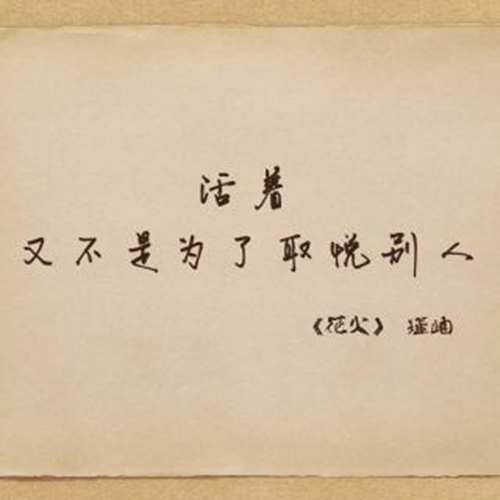 活着
又不是为了取悦别人
《花火》 瑶岫